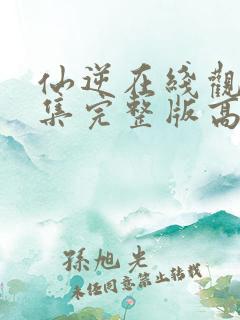 仙逆在綫觀
集完整版高
孫旭光
未经同意禁止转载